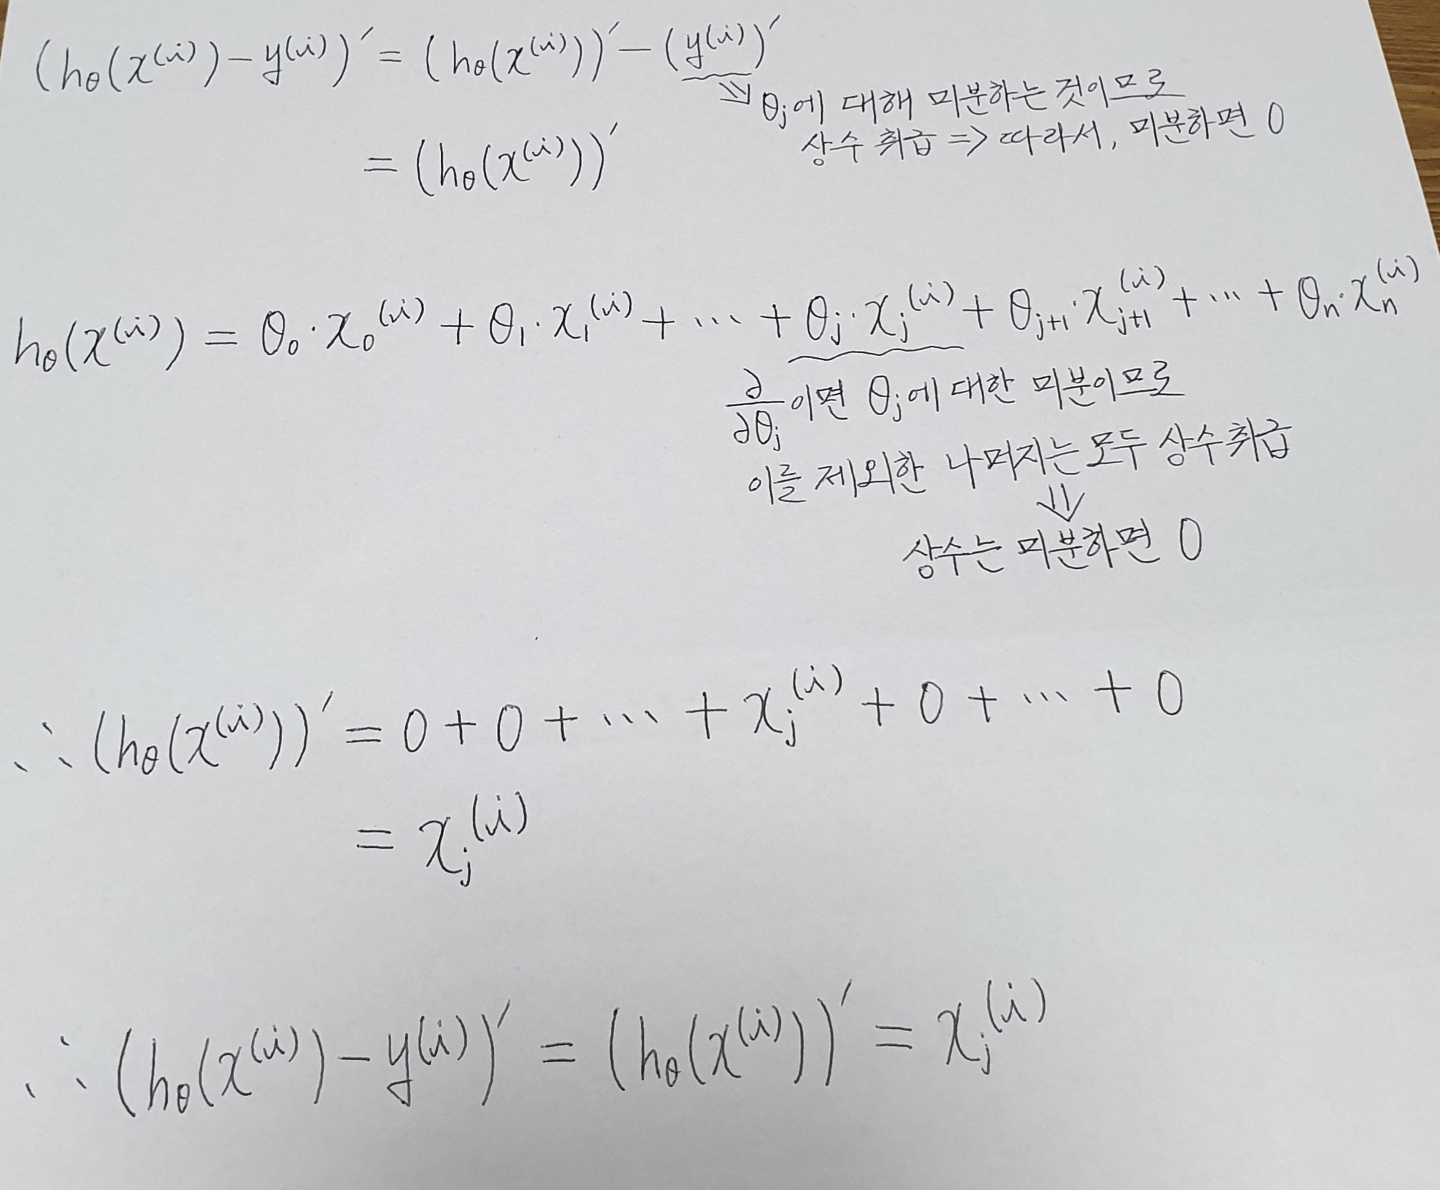 (hθ(x⁽ⁱ⁾) − y⁽ⁱ⁾)′ = (hθ(x⁽ⁱ⁾))′ − (y⁽ⁱ⁾)′
⇒ θj에 대해 미분하는 것이므로
상수 취급 => 따라서, 미분하면 0
= (hθ(x⁽ⁱ⁾))′
hθ(x⁽ⁱ⁾) = θ₀·x₀⁽ⁱ⁾ + θ₁·x₁⁽ⁱ⁾ + ⋯ + θj·xj⁽ⁱ⁾ + θj+1·xj+1⁽ⁱ⁾ + ⋯ + θn·xn⁽ⁱ⁾
∂/∂θj 이면 θj에 대한 미분이므로
이를 제외한 나머지는 모두 상수 취급
⇓
상수는 미분하면 0
∴ (hθ(x⁽ⁱ⁾))′ = 0 + 0 + ⋯ + xj⁽ⁱ⁾ + 0 + ⋯ + 0
= xj⁽ⁱ⁾
∴ (hθ(x⁽ⁱ⁾) − y⁽ⁱ⁾)′ = (hθ(x⁽ⁱ⁾))′ = xj⁽ⁱ⁾